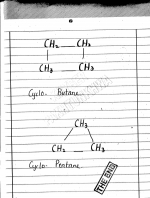 CH₂ — CH₂
CH₂ — CH₂
Cyclo. Butane
CH₂
CH₂ — CH₂
Cyclo. Pentane.
THE END